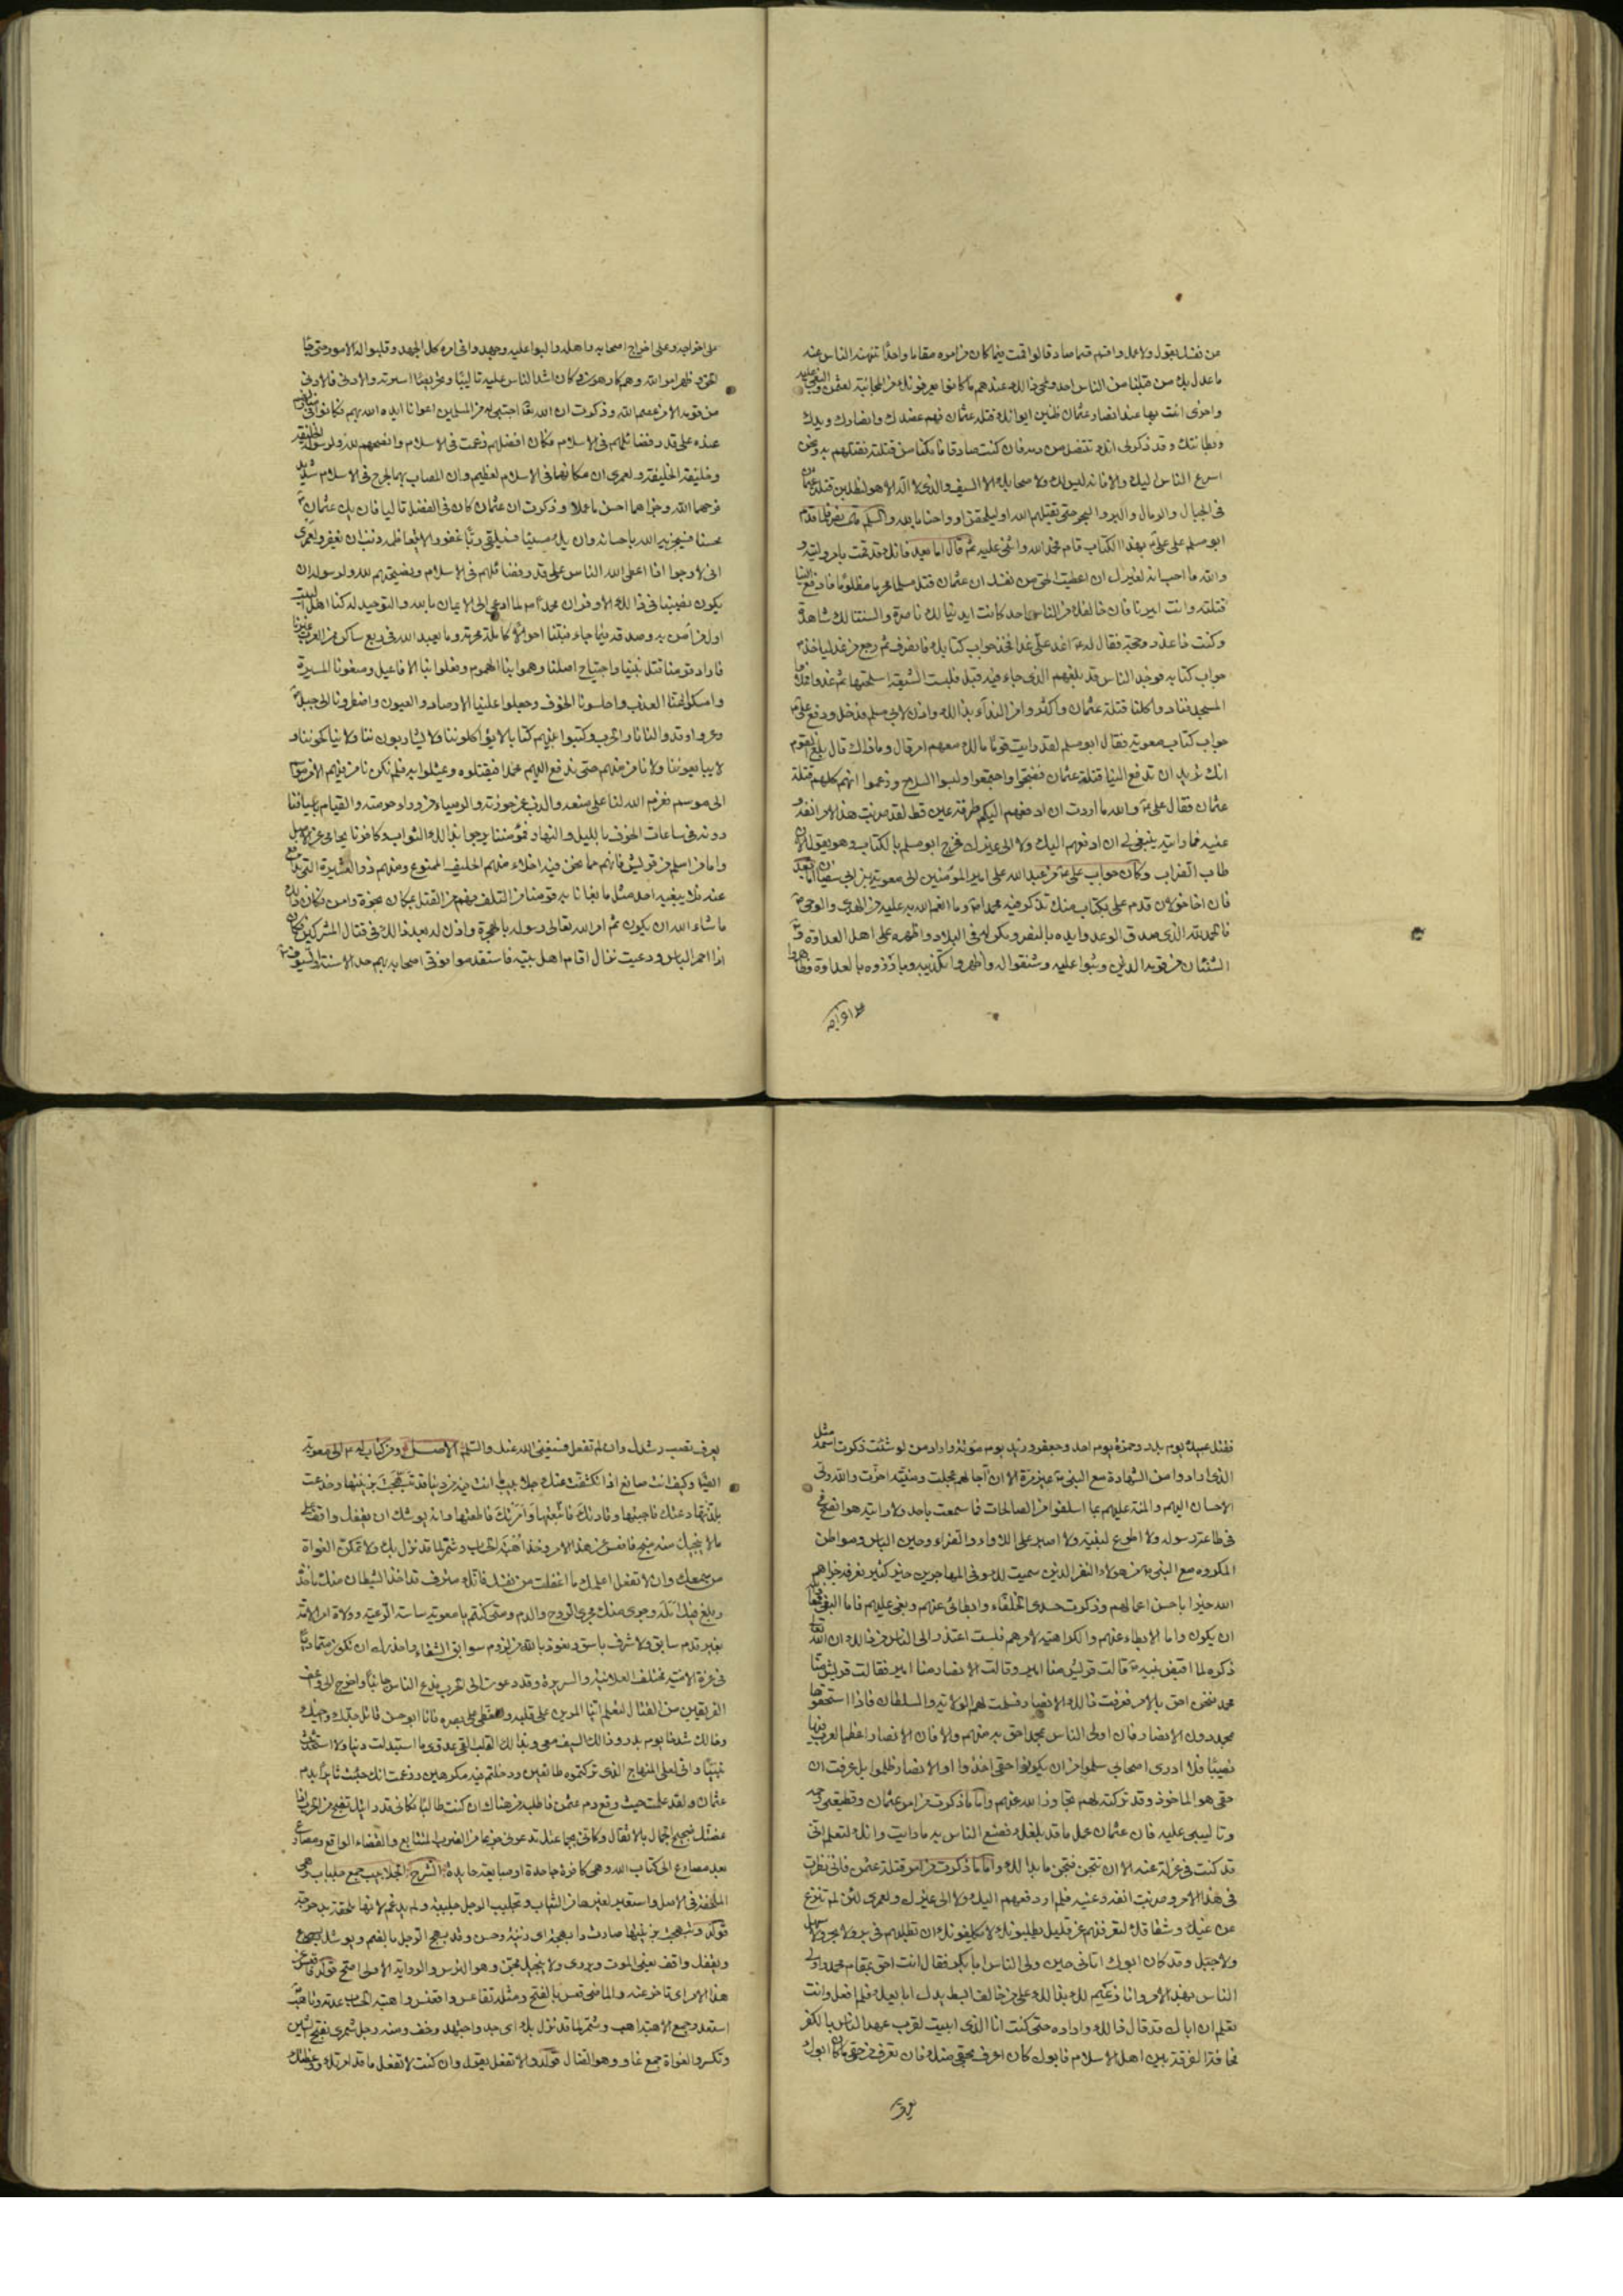 من نفسك بقول ولا عمل واقسم قسما صادقا لو قمت فيما كان من امره مقاما واحدا تنهنه الناس عنه
ما عدل بك من قبلنا من الناس احد ولمحى ذلك عندهم ما كانوا يعرفونك من المجانبة لعثمن والبغى عليه
واخرى انت بها عند انصار عثمان ظنين ايوائك قتلة عثمان فهم عضدك وانصارك ويدك
وبطانتك وقد ذكر لى انك تتنصل من دمه فان كنت صادقا فامكنا من قتلته نقتلهم به ونحن
اسرع الناس اليك والا فانه ليس لك ولا صحابك الا السيف والذى لا اله الا هو لنطلبن قتلة عثمان
فى الجبال والرمال والبر والبحر حتى يقتلهم الله او ليلحقن ارواحنا بالله والسلم فلما قدم
ابو مسلم على على بهذا الكتاب قام فحمد الله واثنى عليه ثم قال اما بعد فانك قد قمت بامر وليته و
والله ما احب انه لغيرك ان اعطيت الحق من نفسك ان عثمان قتل مسلما محرما مظلوما فادفع الينا
قتلته وانت اميرنا فان خالفك من الناس احد كانت ايدينا لك ناصرة والسنتنا لك شاهدة
وكنت ذا عذر وحجة فقال له اغد على غدا فخذ جواب كتابك فانصرف ثم رجع من غد لياخذ
جواب كتابه فوجد الناس قد بلغهم الذى جاء فيه قبل فلبست الشيعة اسلحتها ثم غدوا فملؤا
المسجد فنادوا كلنا قتلة عثمان واكثروا من النداء بذلك واذن لابى مسلم فدخل ودفع على
جواب كتاب معوية فقال ابو مسلم لقد رايت قوما مالك معهم امر قال وما ذاك قال بلغ القوم
انك تريد ان تدفع الينا قتلة عثمان فضجوا واجتمعوا ولبسوا السلاح وزعموا انهم كلهم قتلة
عثمان فقال على والله ما اردت ان ادفعهم اليكم طرفة عين قط لقد ضربت هذا الامر انفه و
عينه فما رايته ينبغى لى ان ادفعهم اليك ولا الى غيرك فخرج ابو مسلم بالكتاب وهو يقول الان
طاب الضراب وكان جواب على من عبد الله على امير المؤمنين الى معوية بن ابى سفين اما بعد
فان اخا خولان قدم على بكتاب منك تذكر فيه محمدا وما انعم الله به عليه من الهدى والوحى
فالحمد لله الذى صدق الوعد وايده بالنصر ومكن له فى البلاد واظهره على اهل العداوة و
الشنئان من قومه الذين وثبوا عليه وشنفوا له واظهروا تكذيبه وبارزوه بالعداوة وظاهروا
على اخراجه وعلى اخراج اصحابه واهله والبوا عليه وجهدوا فى امره كل الجهد وقلبوا له الامور حتى جاء
الحق وظهر امر الله وهم كارهون وكان اشد الناس عليه تاليبا وتحريضا اسرته والادنى فالادنى
من قومه الا من عصم الله وذكرت ان الله تعا اجتبى له من المسلمين اعوانا ايده الله بهم فكانوا فى منازلهم
عنده على قدر فضائلهم فى الاسلام فكان افضلهم زعمت فى الاسلام وانصحهم لله ولرسوله الخليفة
وخليفة الخليفة ولعمرى ان مكانهما فى الاسلام لعظيم وان المصاب بهما لجرح فى الاسلام شديد
فرحمهما الله وجزاهما احسن ما عملا وذكرت ان عثمان كان فى الفضل تاليا فان يك عثمان
محسنا فسيجزيه الله باحسانه وان يك مسيئا فسيلقى ربا غفورا لا يتعاظمه ذنب ان يغفره ولعمرى
انى لارجوا اذا اعطى الله الناس على قدر فضائلهم فى الاسلام ونصيحتهم لله ولرسوله ان
يكون نصيبنا فى ذلك الاوفر ان محمدا لما دعى الى الايمان بالله والتوحيد له كنا اهل البيت
اول من آمن به وصدقه فيما جاء فبتنا احوالا كاملة مجرمة وما يعبد الله فى ربع ساكن من العرب غيرنا
فاراد قومنا قتل نبينا واجتياح اصلنا وهموا بنا الهموم وفعلوا بنا الافاعيل ومنعونا الميرة
وامسكوا عنا العذب واحلسونا الخوف وجعلوا علينا الارصاد والعيون واضطرونا الى جبل
وعر واوقدوا لنا نار الحرب وكتبوا عنهم كتابا لا يؤاكلوننا ولا يشاربوننا ولا يناكحوننا و
لا يبايعوننا ولا نامن منهم حتى ندفع اليهم محمدا فيقتلوه ويمثلوا به فلم نكن نامن فيهم الا من موسم
الى موسم فعزم الله لنا على منعه والذب عن حوزته والرمياء من وراء حرمته والقيام باسيافنا
دونه فى ساعات الخوف بالليل والنهار فمؤمننا يرجوا بذلك الثواب وكافرنا يحامى عن الاصل
واما من اسلم من قريش فانهم مما نحن فيه اخلاء منهم الحليف الممنوع ومنهم ذو العشيرة التى تدافع
عنه فلا يبغيه احد مثل ما بغانا به قومنا من التلف فهم من القتل بمكان نجوة وامن فكان ذلك
ما شاء الله ان يكون ثم امر الله تعالى رسوله بالهجرة واذن له بعد ذلك فى قتال المشركين فكان
اذا احمر الباس ودعيت نزال اقام اهل بيته فاستقدموا فوقى اصحابه بهم حد الاسنة والسيوف
فقتل عبيدة يوم بدر وحمزة يوم احد وجعفر وزيد يوم موتة واراد من لو شئت ذكرت اسمه مثل
الذى ارادوا من الشهادة مع النبى غير مرة الا ان آجالهم عجلت ومنيته اخرت والله ولى
الاحسان اليهم والمنة عليهم بما اسلفوا من الصالحات فما سمعت باحد ولا رايته هو انصح
فى طاعة رسوله ولا اطوع لنبيه ولا اصبر على اللاواء والضراء وحين الباس ومواطن
المكروه مع النبى من هؤلاء النفر الذين سميت لك وفى المهاجرين خير كثير نعرفه جزاهم
الله خيرا باحسن اعمالهم وذكرت حسدى الخلفاء وابطائى عنهم وبغيى عليهم فاما البغى فمعاذ الله
ان يكون واما الابطاء عنهم والكراهية لامرهم فلست اعتذر الى الناس من ذلك ان الله تعالى
ذكره لما قبض نبيه قالت قريش منا امير وقالت الانصار منا امير فقالت قريش منا
محمد نحن احق بالامر فعرفت ذلك الانصار فسلمت لهم الولاية والسلطان فاذا استحقوها
بمحمد دون الانصار فان اولى الناس بمحمد احق به منهم والا فان الانصار اعظم العرب فيها
نصيبا فلا ادرى اصحابى سلموا من ان يكونوا حقى اخذوا او الانصار ظلموا بل عرفت ان
حقى هو الماخوذ وقد تركته لهم تجاوز الله عنهم واما ما ذكرت من امر عثمان وقطيعتى رحمه
وتاليبى عليه فان عثمان عمل ما قد بلغك فصنع الناس به ما رايت وانك لتعلم انى
قد كنت فى عزلة عنه الا ان تتجنى فتجن ما بدا لك واما ما ذكرت من امر قتلة عثمن فانى نظرت
فى هذا الامر وضربت انفه وعينه فلم ار دفعهم اليك ولا الى غيرك ولعمرى لئن لم تنزع
عن غيك وشقاقك لتعرفنهم عن قليل يطلبونك لا يكلفونك ان تطلبهم فى بر ولا بحر ولا سهل
ولا جبل وقد كان ابوك اتانى حين ولى الناس ابا بكر فقال انت احق بمقام محمد واولى
الناس بهذا الامر وانا زعيم لك بذلك على من خالف ابسط يدك ابايعك فلم افعل وانت
تعلم ان اباك قد قال ذلك واراده حتى كنت انا الذى ابيت لقرب عهد الناس بالكفر
مخافة الفرقة بين اهل الاسلام فابوك كان اعرف بحقى منك فان تعرف من حقى ما كان ابوك
يعرف تصب رشدك وان لم تفعل فسيغنى الله عنك والسلم الاصل ومن كتاب له الى معوية
ايضا وكيف انت صانع اذا تكشفت عنك جلابيب ما انت فيه من دنيا قد تبهجت بزينتها وخدعت
بلذتها دعتك فاجبتها وقادتك فاتبعتها وامرتك فاطعتها وانه يوشك ان يقفك واقف على
ما لا ينجيك منه منج فاقعس عن هذا الامر وخذ اهبة الحساب وشمر لما قد نزل بك ولا تمكن الغواة
من سمعك وان لا تفعل اعلمك ما اغفلت من نفسك فانك مترف قد اخذ الشيطان منك ماخذه
وبلغ فيك امله وجرى منك مجرى الروح والدم ومتى كنتم يا معوية ساسة الرعية وولاة امر الامة
بغير قدم سابق ولا شرف باسق ونعوذ بالله من لزوم سوابق الشقاء واحذرك ان تكون متماديا
فى غرة الامنية مختلف العلانية والسريرة وقد دعوت الى الحرب فدع الناس جانبا واخرج الى واعف
الفريقين من القتال لتعلم اينا المرين على قلبه والمغطى على بصره فانا ابو حسن قاتل جدك وخالك
واخيك شدخا يوم بدر وذلك السيف معى وبذلك القلب القى عدوى ما استبدلت دينا ولا استحدثت
نبيا وانى لعلى المنهاج الذى تركتموه طائعين ودخلتم فيه مكرهين وزعمت انك جئت ثائرا بدم
عثمان ولقد علمت حيث وقع دم عثمن فاطلبه من هناك ان كنت طالبا فكانى قد رايتك تضج من الحرب اذا
عضتك ضجيج الجمال بالاثقال وكانى بجماعتك تدعونى جزعا من الضرب المتتابع والقضاء الواقع ومصارع
بعد مصارع الى كتاب الله وهى كافرة جاحدة او مبايعة حايدة الشرح الجلابيب جمع جلباب وهى
الملحفة فى الاصل واستعير لغيرها من الثياب وتجلبب الرجل جلببة ولم يدغم لانها ملحقة بدحرجة
قوله وتبهجت بزينتها صارت ذا بهجة اى زينة وحسن وقد بهج الرجل بالضم ويوشك يسرع
ويقفك واقف يعنى الموت ويروى ولا ينجيك مجن وهو الترس والرواية الاولى اصح قوله فاقعس عن
هذا الامر اى تاخر عنه والماضى قعس بالفتح ومثله تقاعس واقعنسس واهبة الحساب عدته وتاهب
استعد وجمع الاهبة اهب وشمر لما قد نزل بك اى جد واجتهد وخف ومنه رجل شمرى بفتح الشين
وتكسر والغواة جمع غاو وهو الضال قوله والا تفعل يقول وان كنت لا تفعل ما قد امرتك ووعظتك